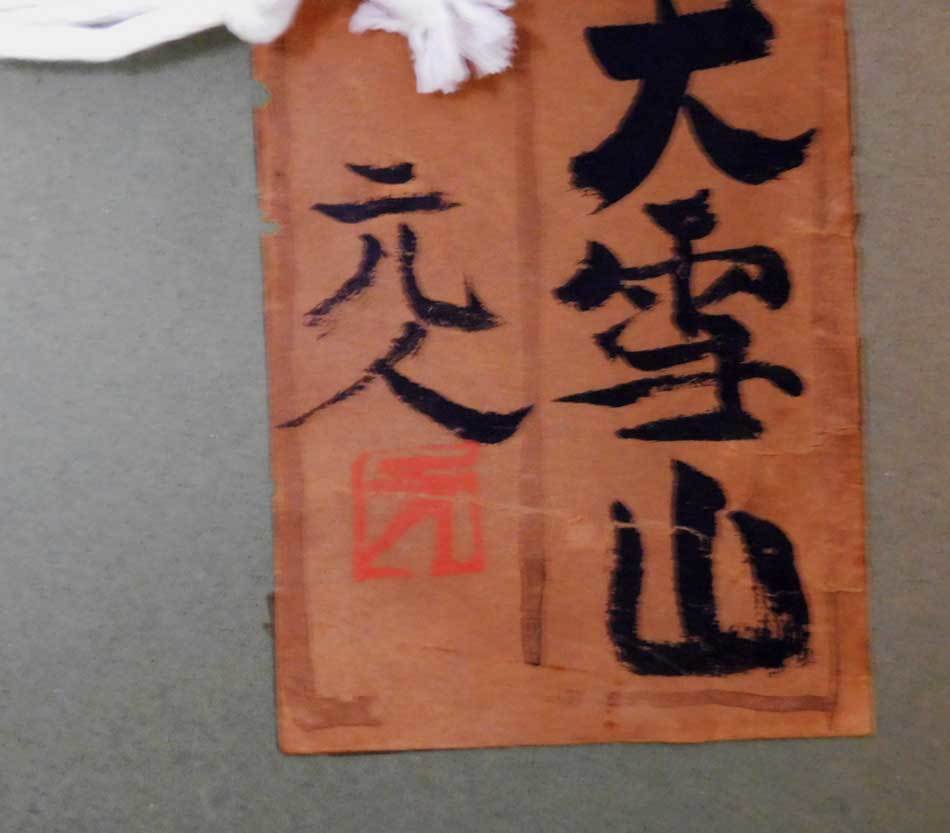 大雪山
元人